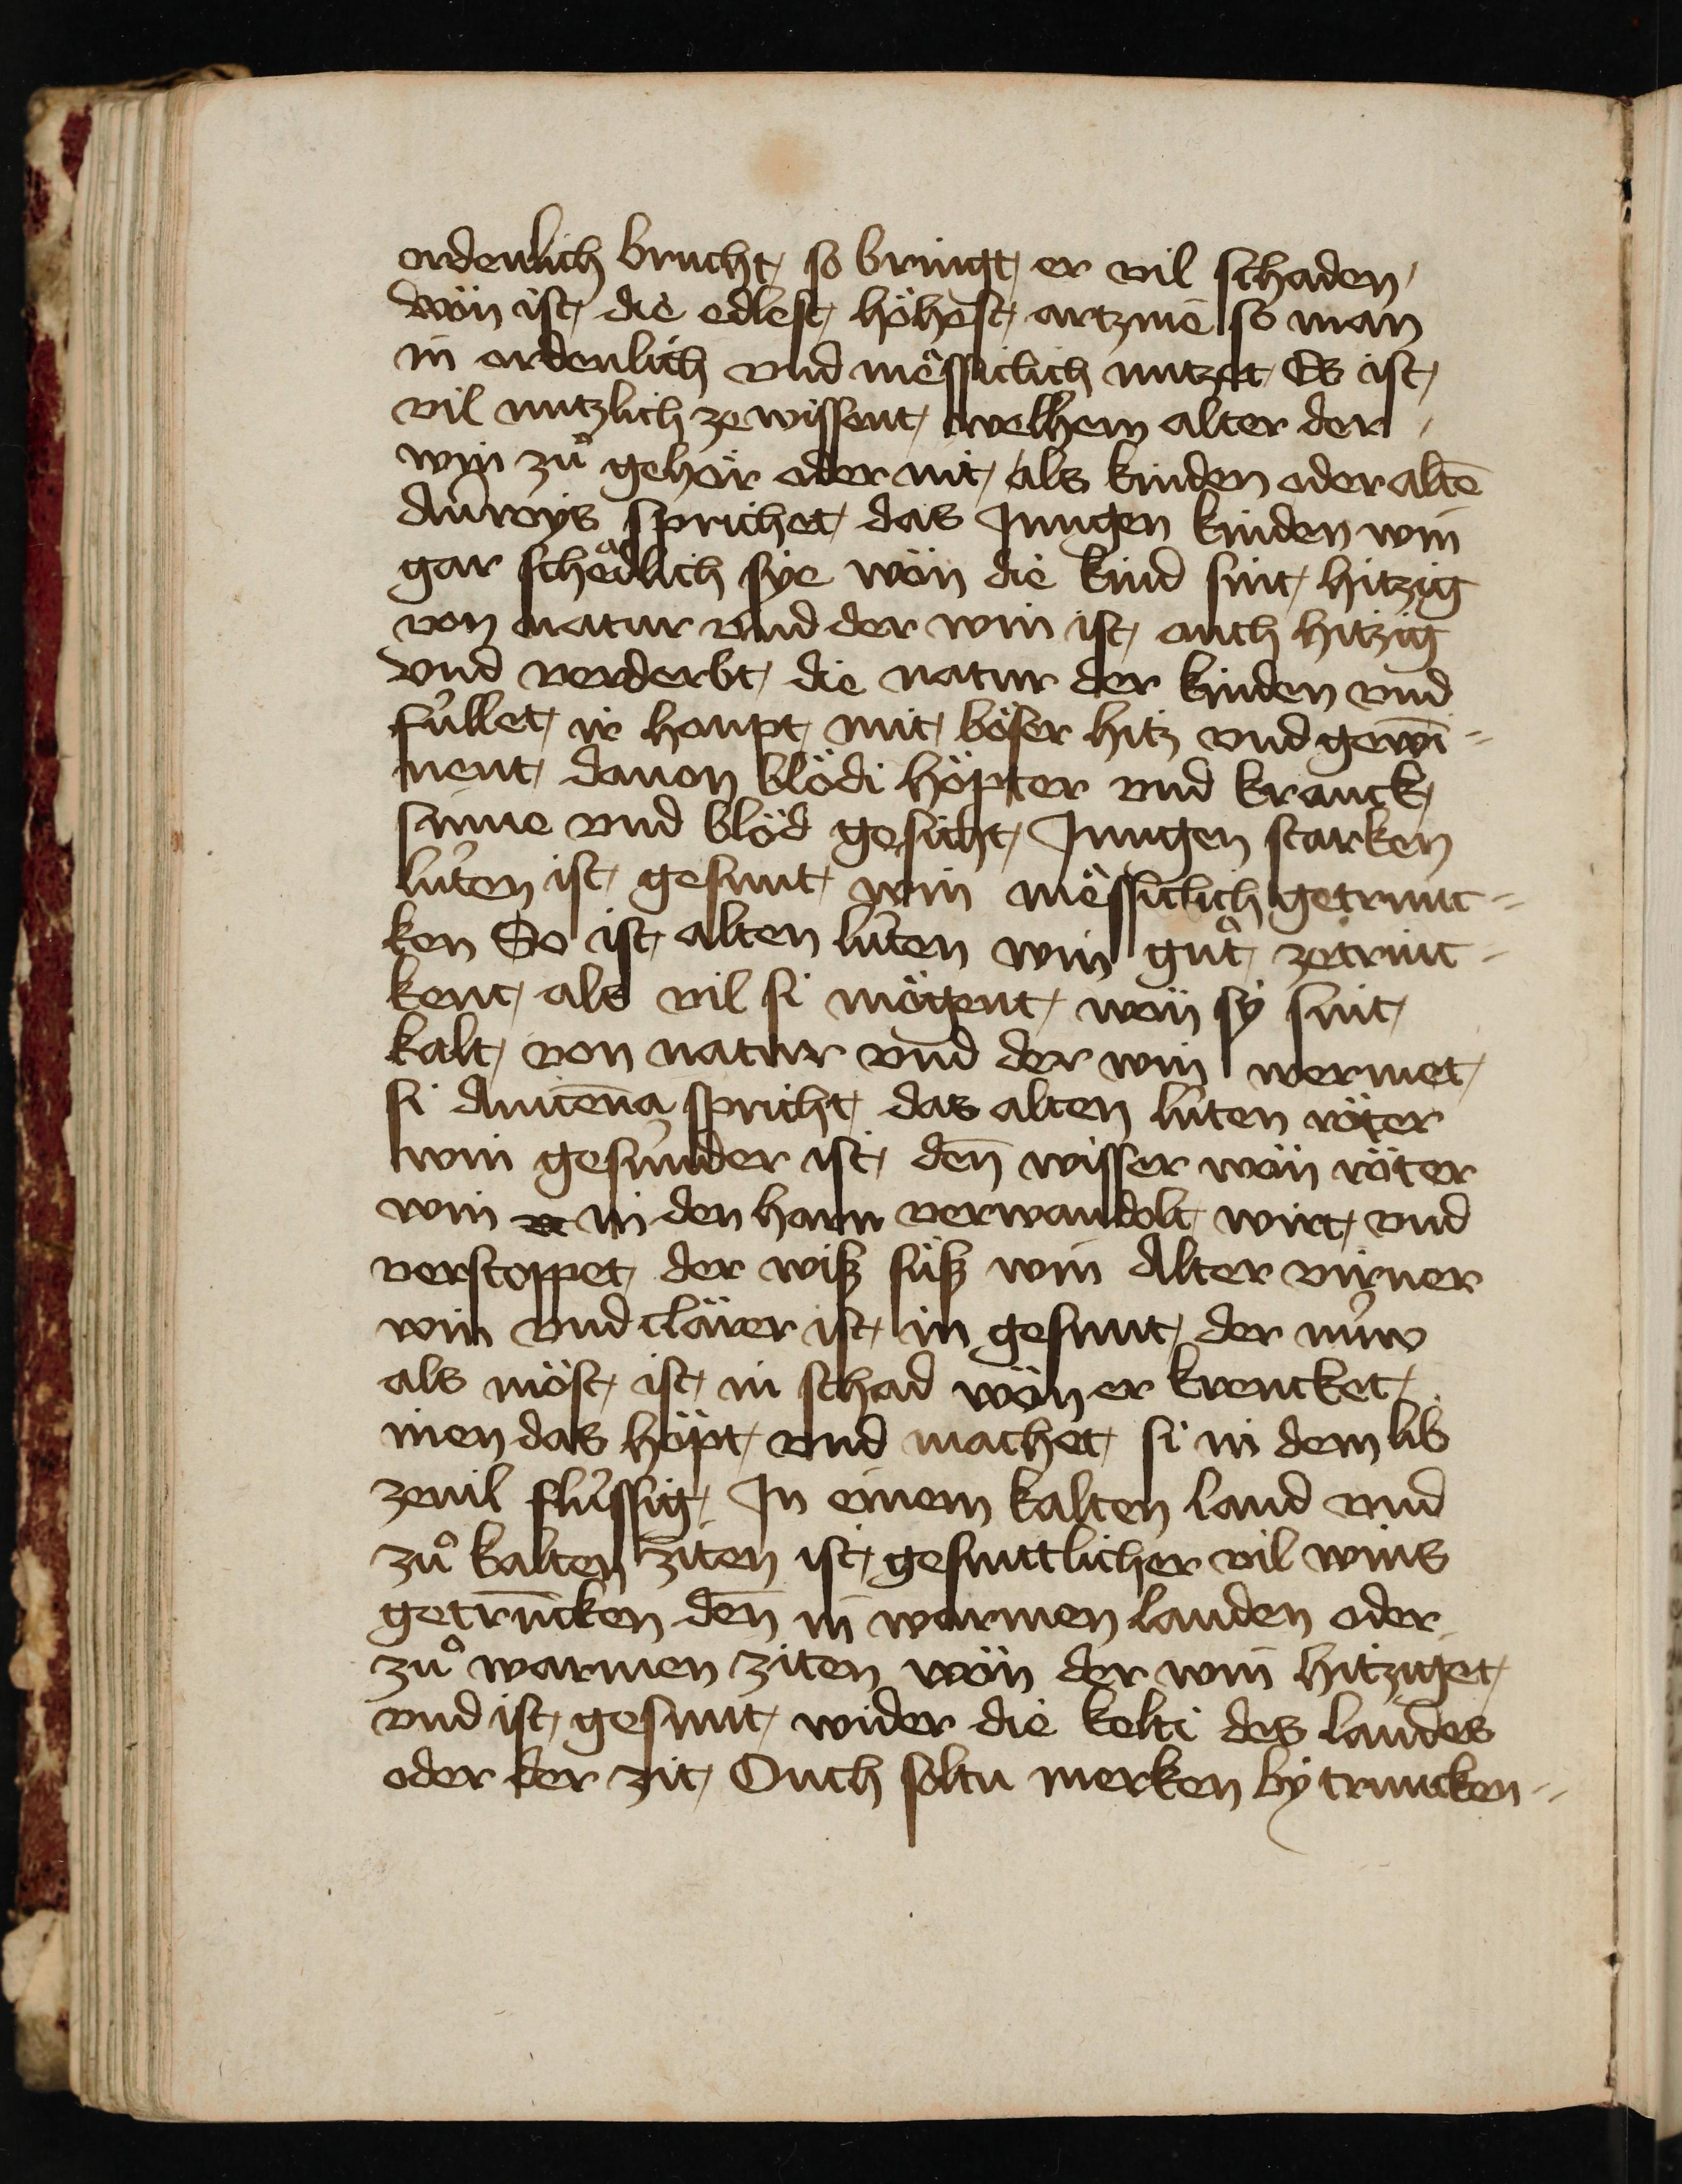 ordenlich brucht so bringt er vil schaden
Win ist die edlest höhest artznie so man
in ordenlich vnd mesſiclich nutzet Es ist
vil nutzlich ze wissent welhem alter der
win zů gehör oder nit als kinden oder altē
Auroys sprichet das Jungen kinden win
gar schedlich sye wön die kind sint hitzig
von natur vnd der win ist ouch hitzig
vnd verderbt die natur der kinden vnd
füllet ir houpt mit böser hitz vnd gewī-
nent dauon blödi höpter vnd kranck
sinne vnd blöd gesicht Jungen starken
lüten ist gesunt win messiclich getrunc-
ken So ist alten lüten win gůt zetrinc-
kent als vil si mögent wön sy sint
kalt von natur vnd der win wermet
si Auicēna spricht das alten lüten röter
win gesünder ist deñ wisser wön röter
win in den harn verwandolt wirt vnd
verstoppet der wiß süß win Alter virner
win vnd clärer ist in gesunt der nüw
als möst ist in schad wön er krencket
inen das höpt vnd machet si in dem lib
zevil flüssig In einem kalten land vnd
zů kalten ziten ist gesuntlicher vil wins
getrūcken deñ in warmen landen oder
zů warmen ziten wön der win hitziget
vnd ist gesunt wider die kelti des landes
oder der zit Ouch soltu merken by trincken-